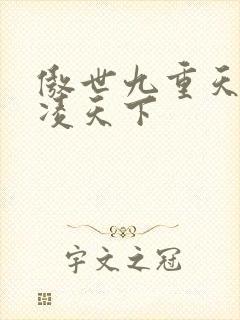 傲世九重天
凌天下
宇文之冠